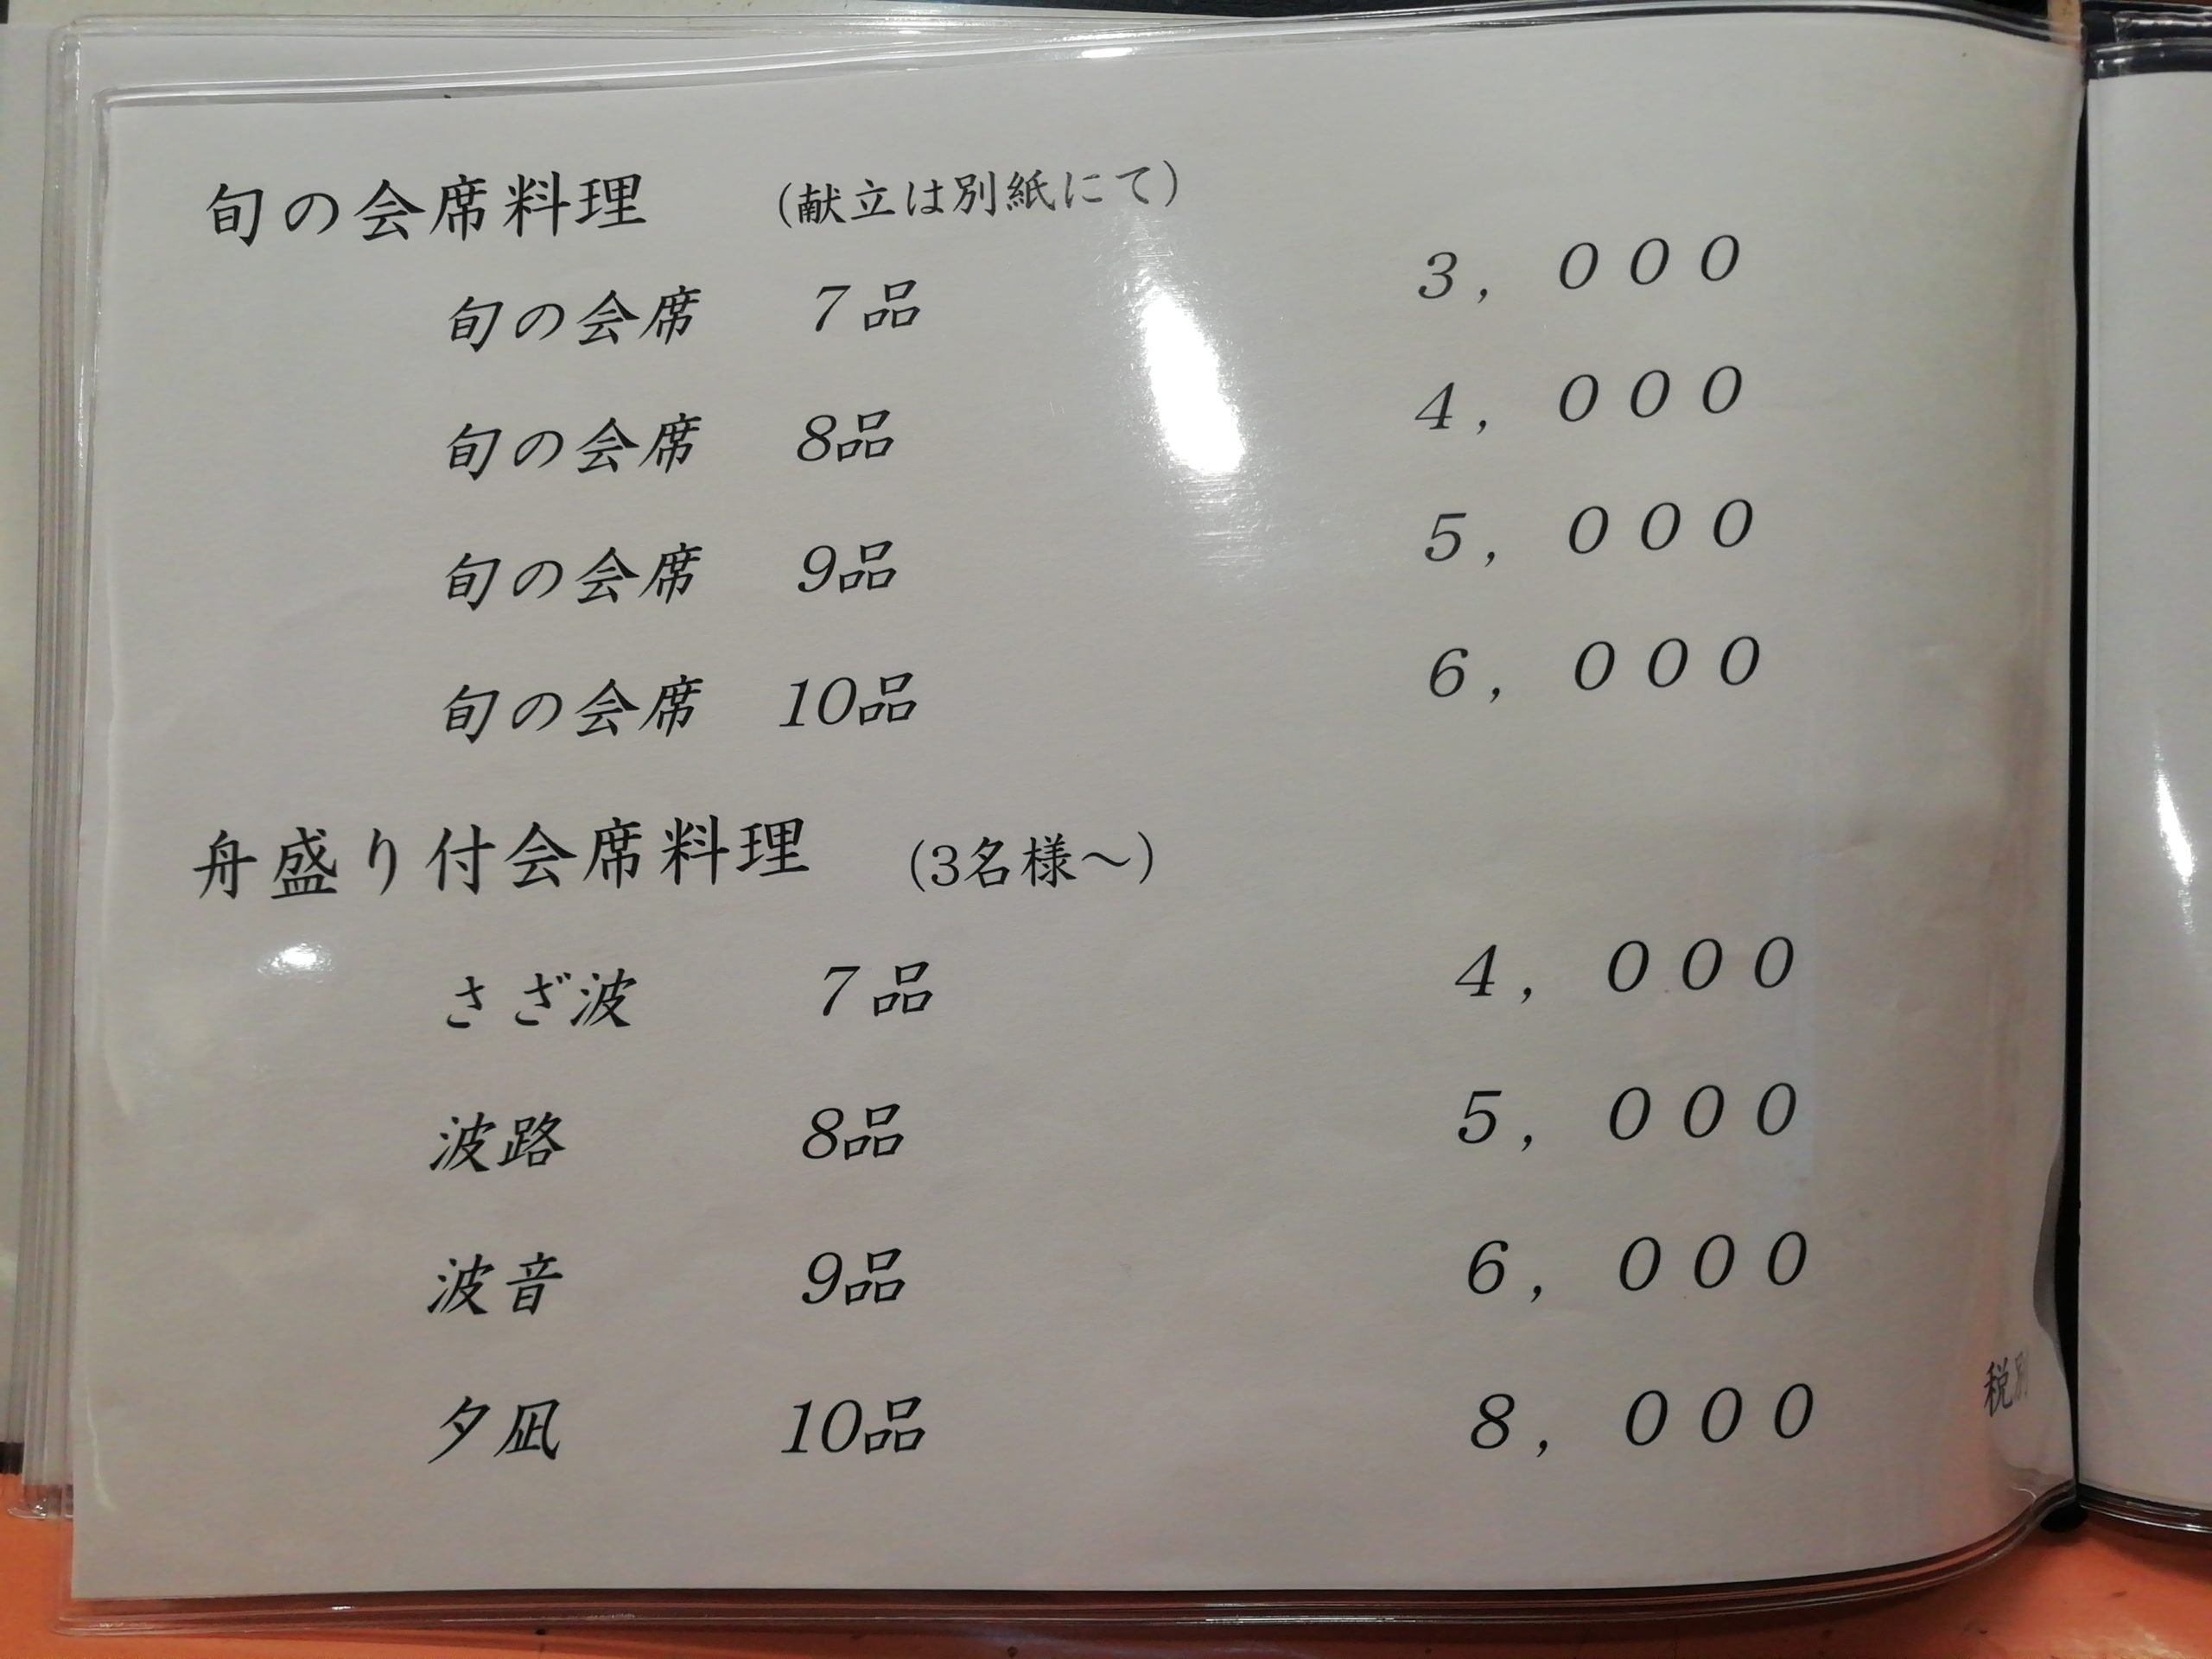 旬の会席料理 (献立は別紙にて)
旬の会席 7品 3,000
旬の会席 8品 4,000
旬の会席 9品 5,000
旬の会席 10品 6,000
舟盛り付会席料理 (3名様～)
さざ波 7品 4,000
波路 8品 5,000
波音 9品 6,000
夕凪 10品 8,000
税別